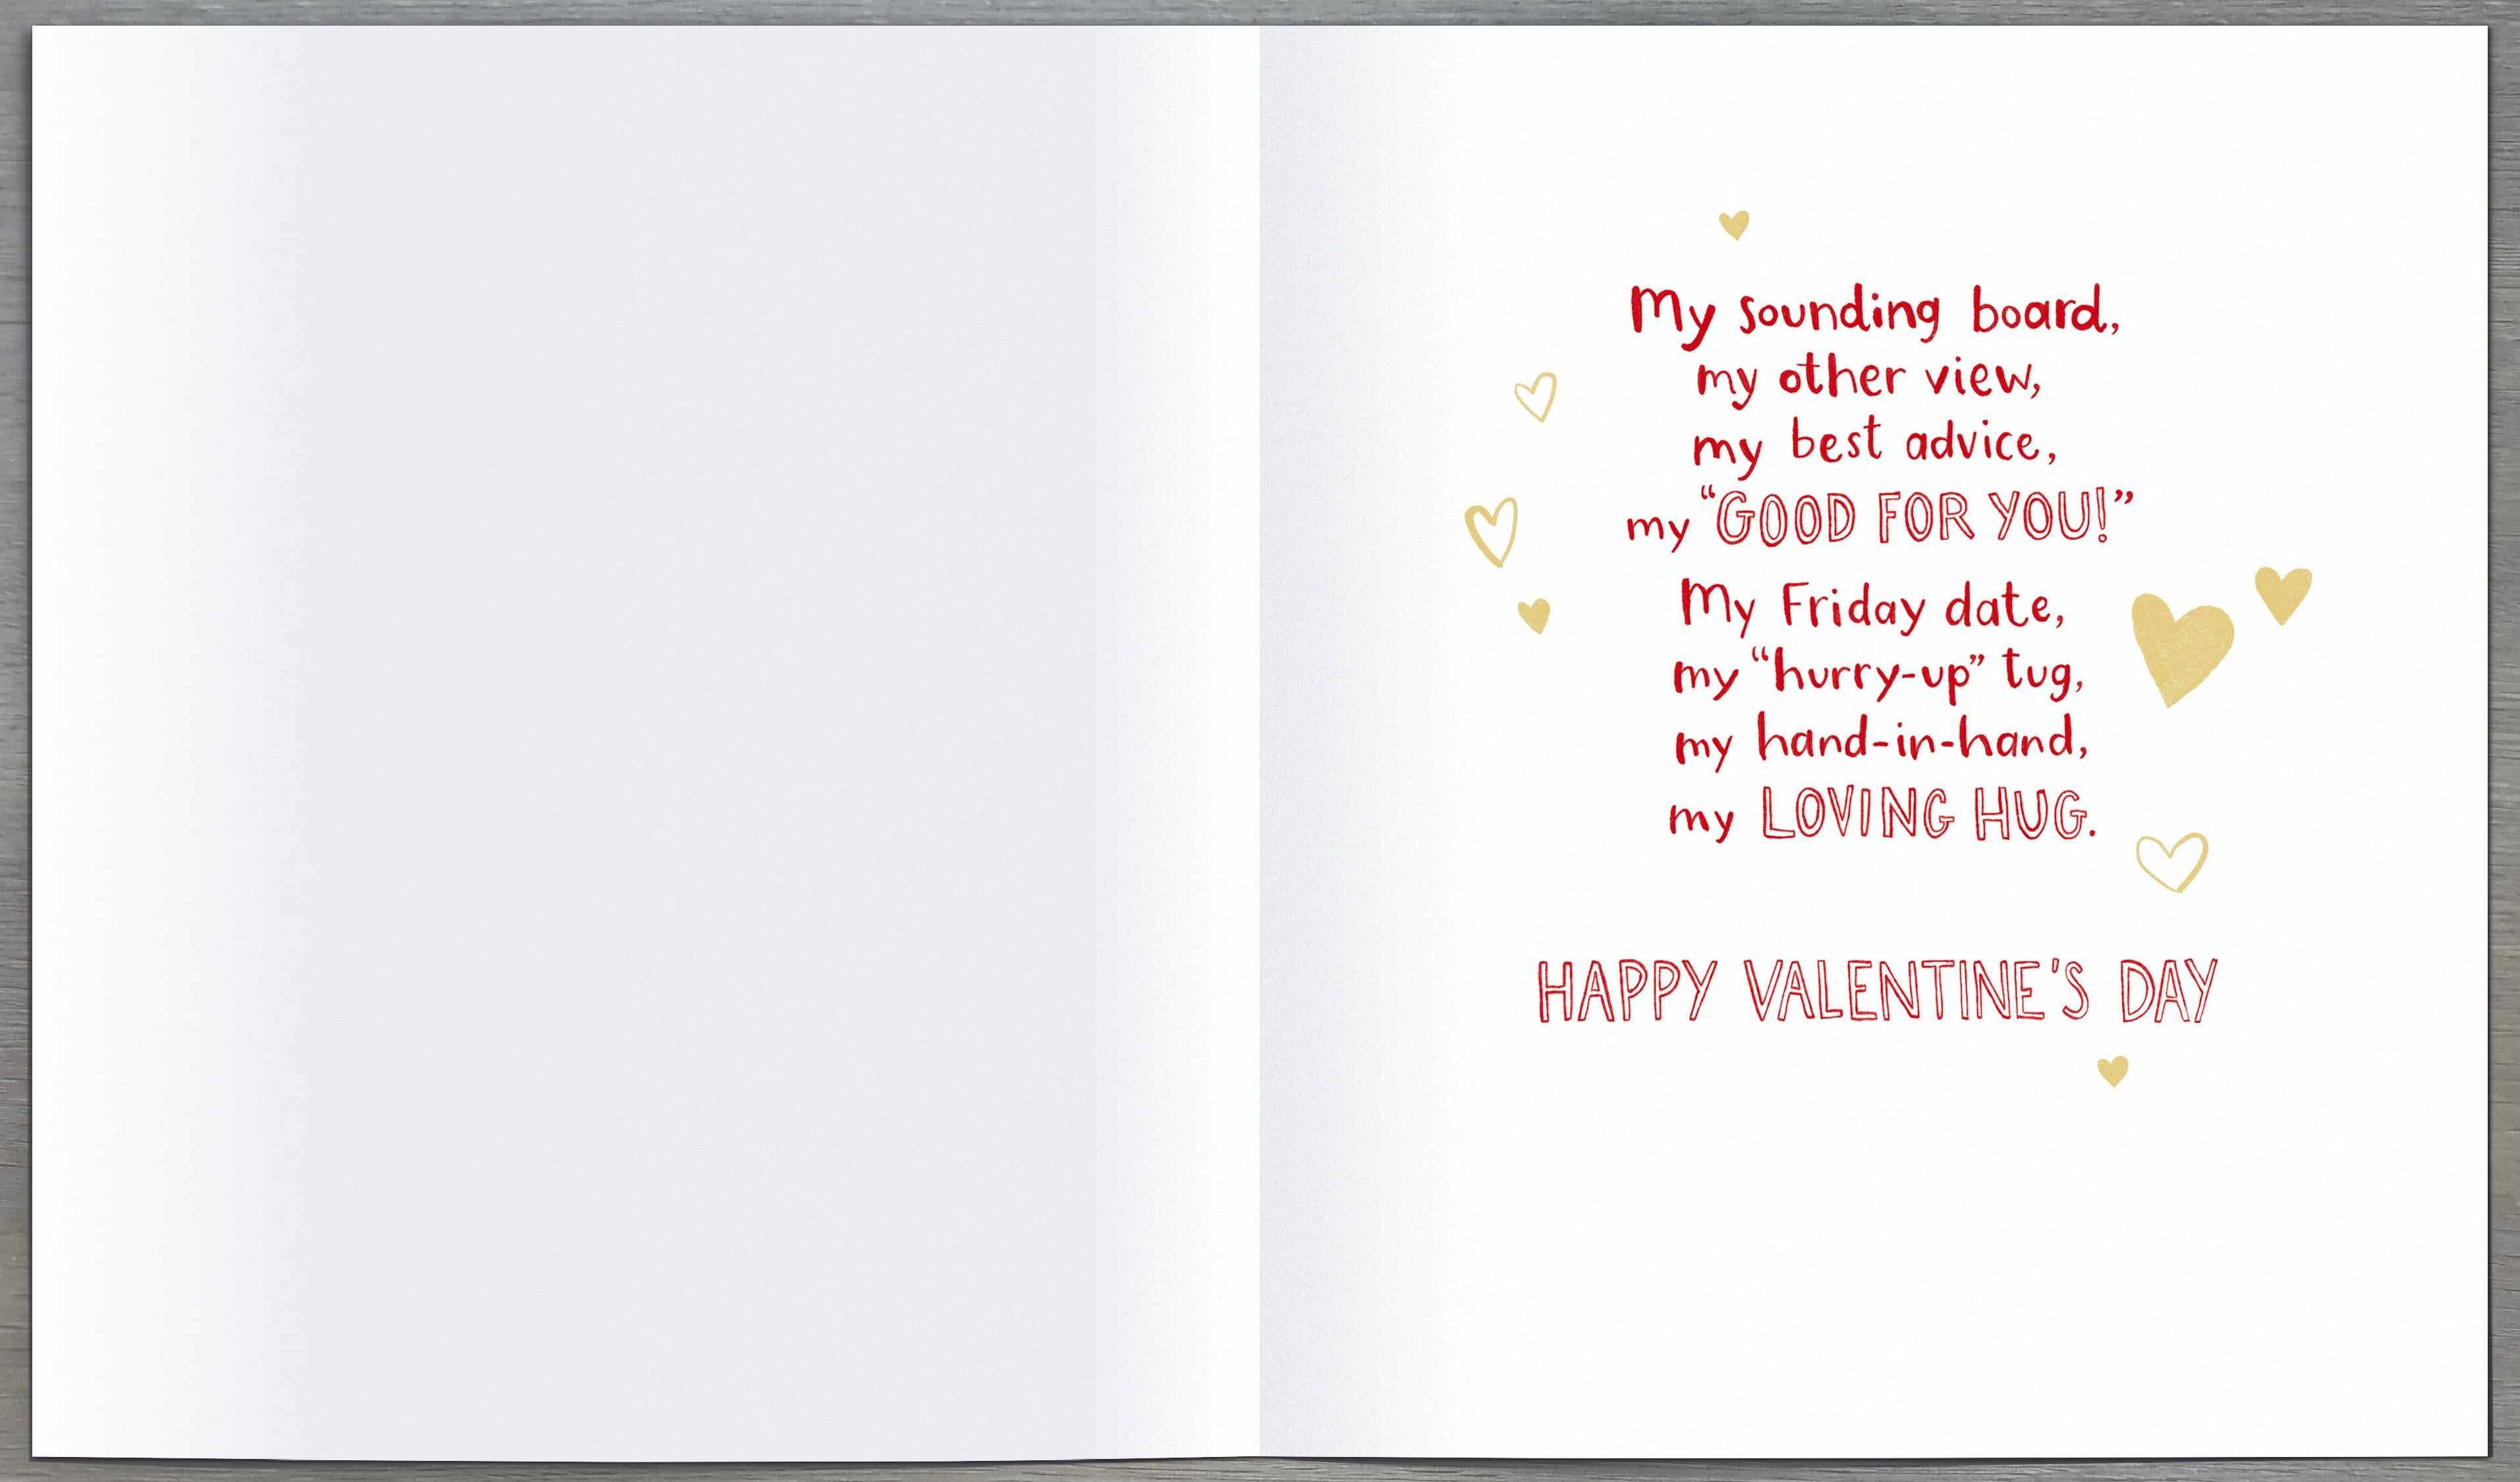 My sounding board,
my other view,
my best advice,
my “GOOD FOR YOU!”
My Friday date,
my “hurry-up” tug,
my hand-in-hand,
my LOVING HUG.
HAPPY VALENTINE'S DAY